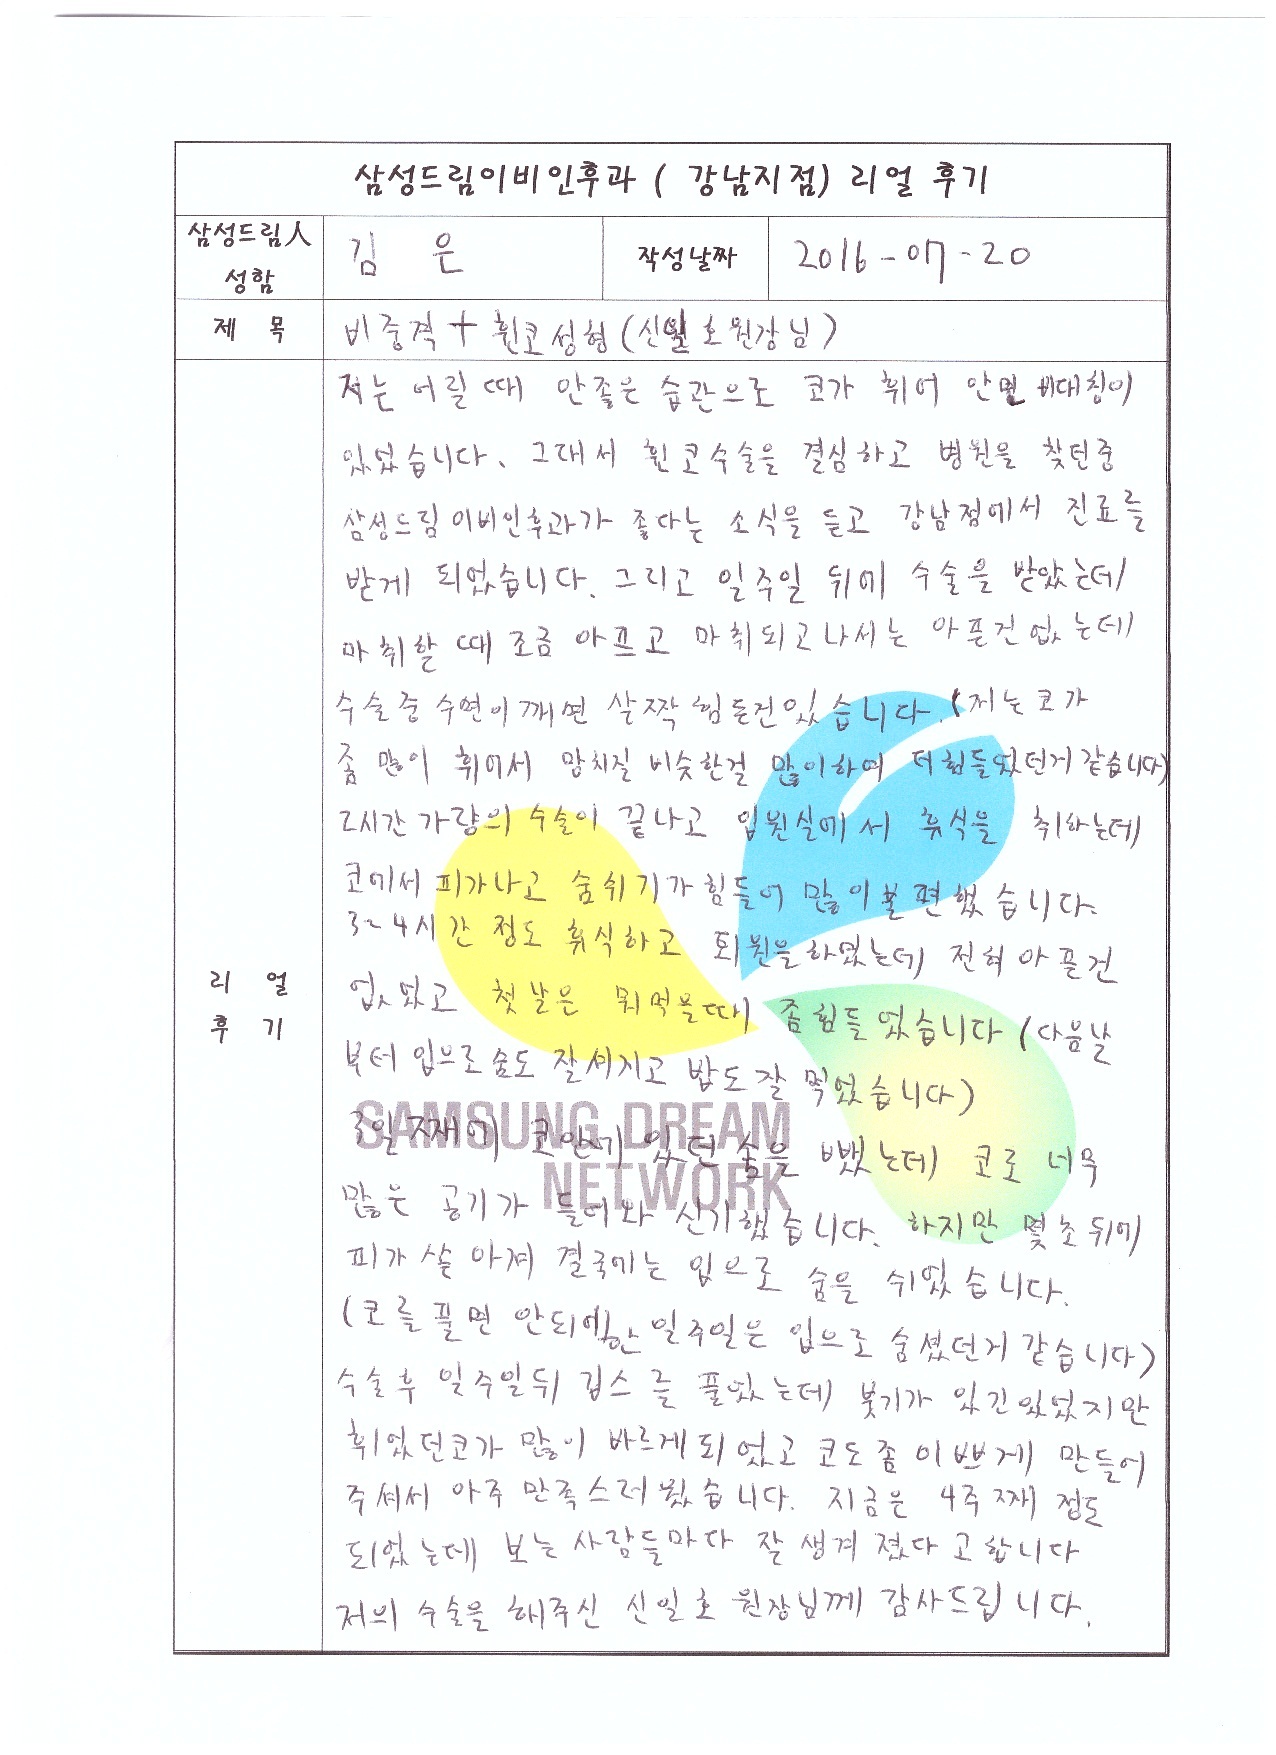 삼성드림이비인후과 ( 강남지점) 리얼 후기
삼성드림人
성함
김 은
작성날짜
2016-07-20
제 목
비중격 + 휜코성형 (신일호원장님)
저는 어릴 때 안좋은 습관으로 코가 휘어 안면 비대칭이
있었습니다. 그래서 휜코수술을 결심하고 병원을 찾던중
삼성드림이비인후과가 좋다는 소식을 듣고 강남점에서 진료를
받게 되었습니다. 그리고 일주일 뒤에 수술을 받았는데
마취할 때 조금 아프고 마취되고나서는 아픈건없는데
수술중 수면이깨면 살짝 힘든건있습니다. (저는 코가
좀 많이 휘어서 망치질 비슷한걸 많이하여 더힘들었던거같습니다)
2시간 가량의 수술이 끝나고 입원실에서 휴식을 취하는데
코에서 피가나고 숨쉬기가힘들어 많이불편했습니다.
3~4시간 정도 휴식하고 퇴원을하였는데 전혀 아픈건
없었고 첫날은 뭐먹을때 좀힘들었습니다 (다음날
부터 입으로숨도 잘쉬지고 밥도잘 먹었습니다)
3일째에 코안에 있던 솜을 뺐는데 코로 너무
많은 공기가 들어와 신기했습니다. 하지만 몇초뒤에
피가 쏠아져 결국에는 입으로 숨을 쉬었습니다.
(코를풀면 안되에한 일주일은 입으로 숨셨던거 같습니다)
수술후 일주일뒤 깁스를 풀었는데 붓기가 있긴있었지만
휘었던코가 많이 바르게되었고 코도좀이쁘게 만들어
주셔서 아주 만족스러웠습니다. 지금은 4주째 정도
되었는데 보는사람들마다 잘생겨졌다고합니다
저의 수술을 해주신 신일호 원장님께 감사드립니다.
리 얼
후 기
SAMSUNG DREAM
NETWORK